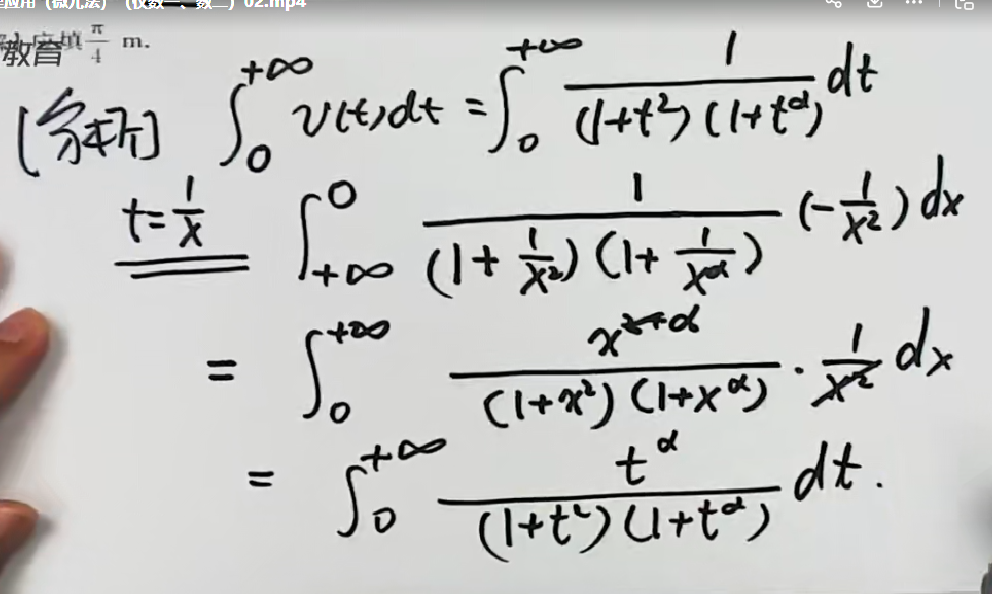 应用（微元法）（仅数一、数二）02.mp4
应填 \frac{π}{4} m.
教育
[分析] \int_0^{+∞} v(t)dt = \int_0^{+∞} \frac{1}{(1+t^2)(1+t^α)} dt
\overset{t=\frac{1}{x}}{=} \int_{+∞}^0 \frac{1}{(1+\frac{1}{x^2})(1+\frac{1}{x^α})} (-\frac{1}{x^2}) dx
= \int_0^{+∞} \frac{x^{2+α}}{(1+x^2)(1+x^α)} · \frac{1}{x^2} dx
= \int_0^{+∞} \frac{t^α}{(1+t^2)(1+t^α)} dt.